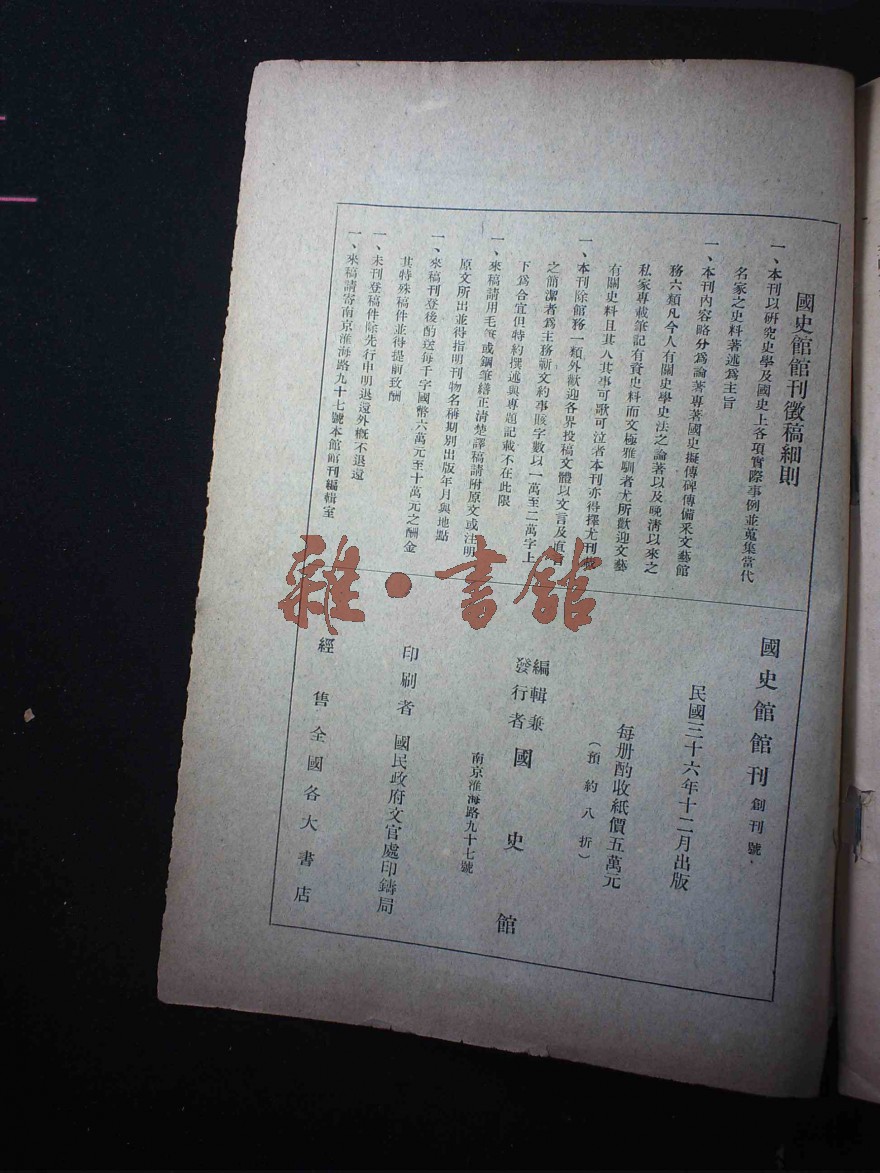 國史館館刊徵稿細則
一、本刊以研究史學及國史上各項實際事例並蒐集當代
名家之史料著述爲主旨
一、本刊內容略分爲論著專著國史擬傳碑傳備采文藝館
務六類凡今人有關史學史法之論著以及晚清以來之
私家專載筆記有資史料而文極雅馴者尤所歡迎文藝
有關史料且其人其事可歌可泣者本刊亦得擇尤刊載
一、本刊除館務一類外歡迎各界投稿文體以文言及
之簡潔者爲主務嶄文約事賅字數以一萬至二萬字上
下爲合宜但特約撰述與專題記載不在此限
一、來稿請用毛筆或鋼筆繕正清楚譯稿請附原文或注明
原文所出並得指明刊物名稱期別出版年月與地點
一、來稿刊登後酌送每千字國幣六萬元至十萬元之酬金
其特殊稿件並得提前致酬
一、未刊登稿件除先行申明退還外概不退還
一、來稿請寄南京淮海路九十七號本館館刊編輯室
國史館館刊 創刊號
民國三十六年十二月出版
每册酌收紙價五萬元
（預約八折）
編輯兼發行者 國史館
南京淮海路九十七號
印刷者 國民政府文官處印鑄局
經售全國各大書店
雜·書館